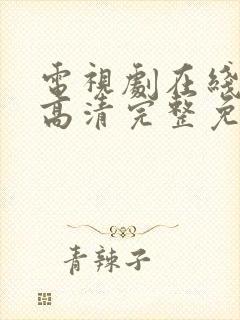 電視劇在綫
高清完整免
青辣子